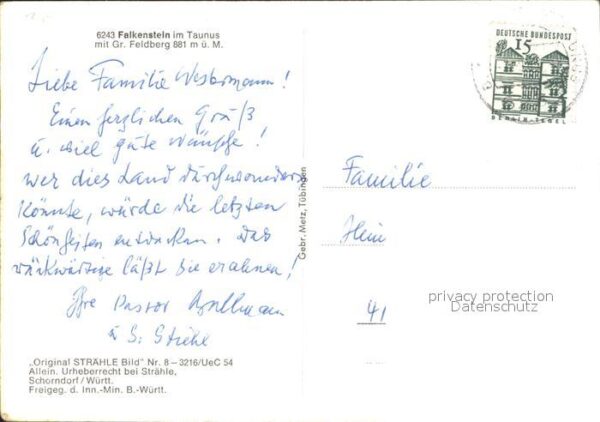 6243 Falkenstein im Taunus
mit Gr. Feldberg 881 m ü. M.
Liebe Familie Westermann!
Einen herzlichen Gruß
u. viel gute Wünsche!
wer dies Land durchwandern
könnte, würde die letzten
Schönheiten entdecken. Das
rückwärtige läßt Sie erahnen!
Ihre Pastor
u S.
„Original STRÄHLE Bild" Nr. 8–3216/UeC 54
Allein. Urheberrecht bei Strähle,
Schorndorf / Württ.
Freigeg. d. Inn.-Min. B.-Württ.
Gebr. Metz, Tübingen
DEUTSCHE BUNDESPOST
15
BERLIN-TEGEL
Familie
41
privacy protection
Datenschutz